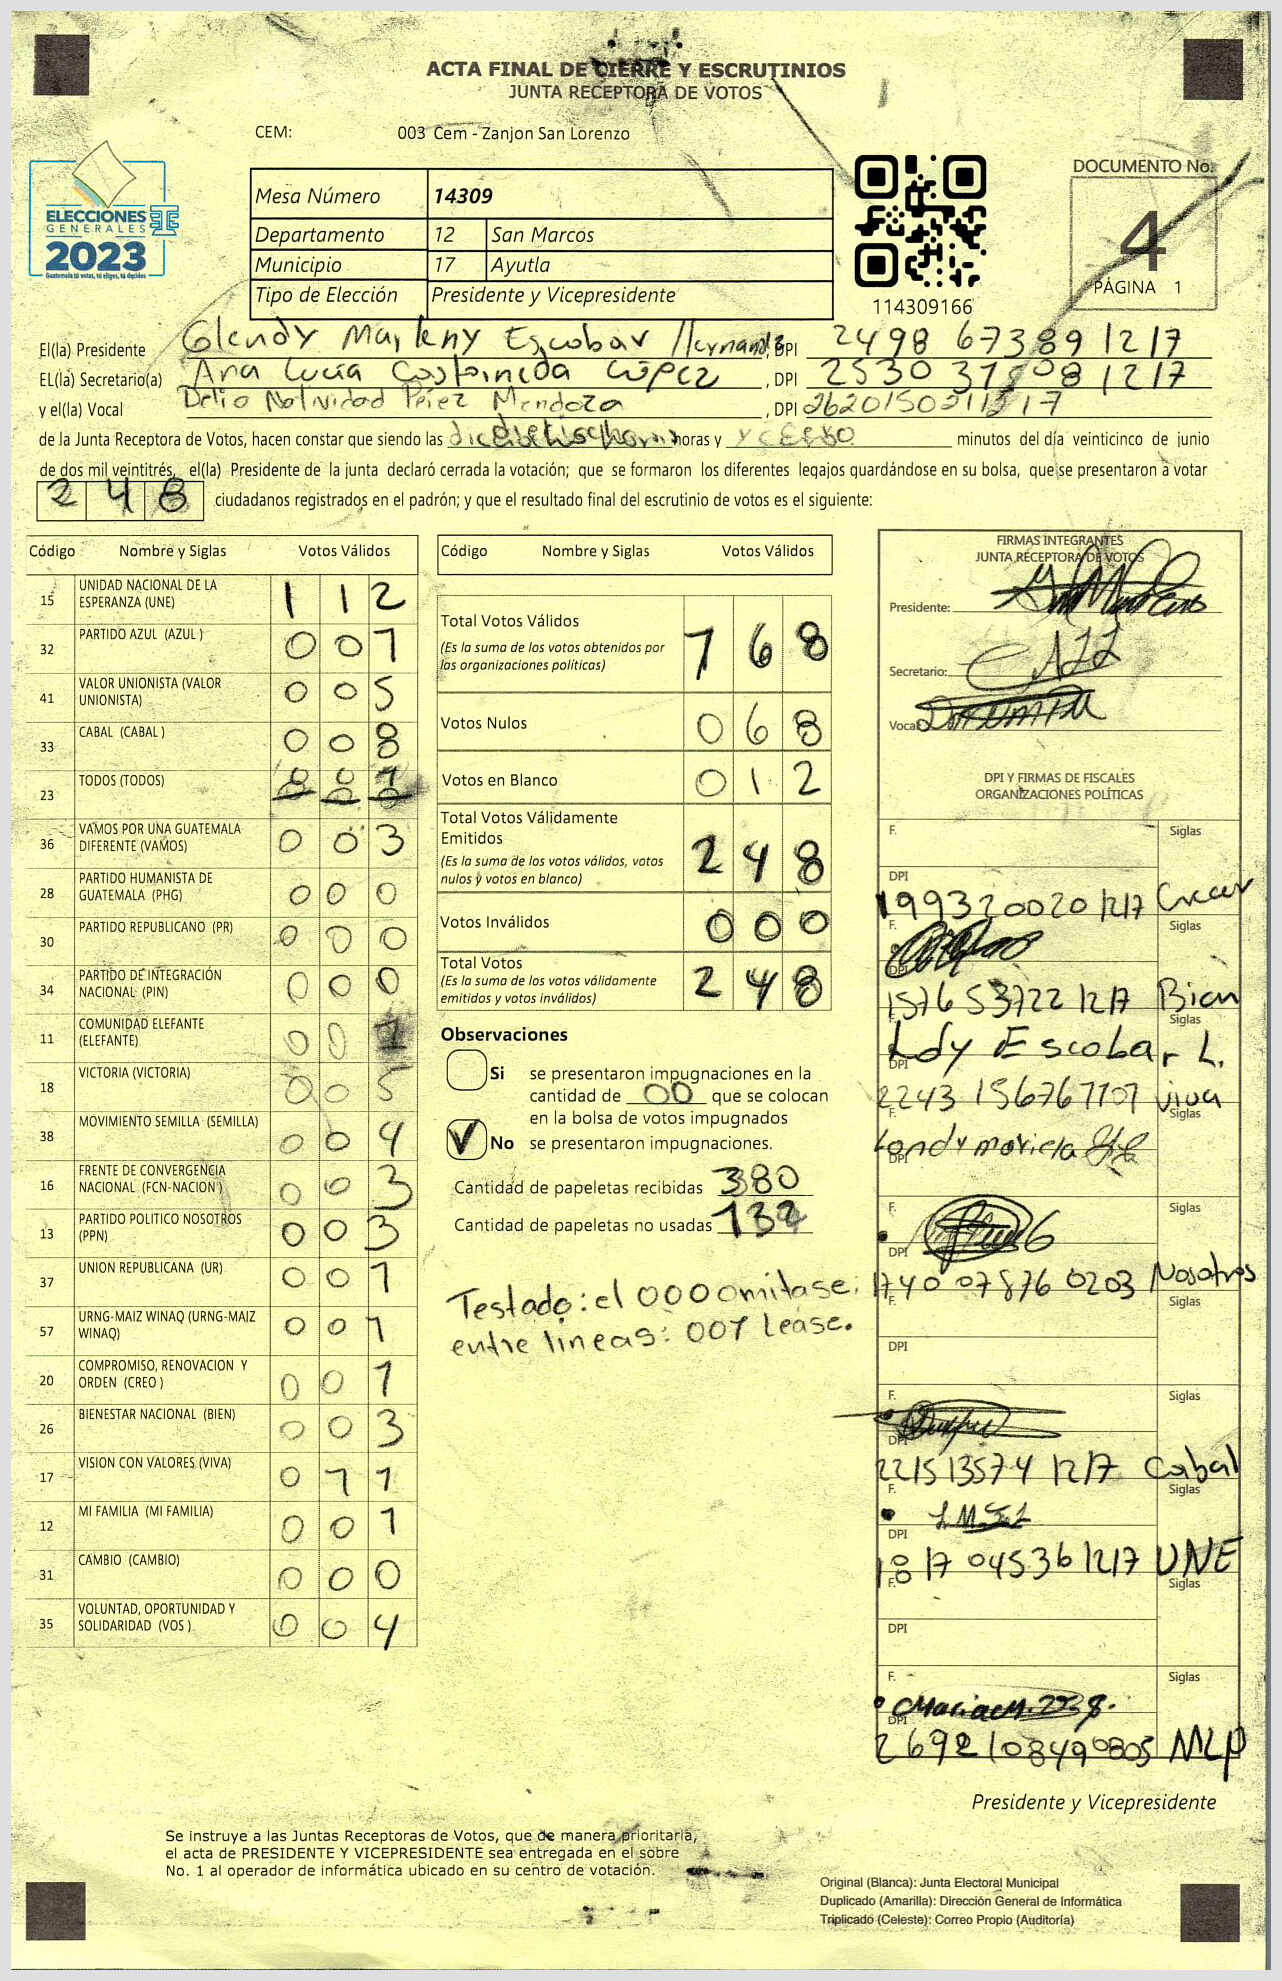 ACTA FINAL DE CIERRE Y ESCRUTINIOS
JUNTA RECEPTORA DE VOTOS
CEM: 003 Cem - Zanjon San Lorenzo
ELECCIONES
GENERALES
2023
Guatemala tú votas, tú eliges, tú decides
Mesa Número 14309
Departamento 12 San Marcos
Municipio 17 Ayutla
Tipo de Elección Presidente y Vicepresidente
114309166
DOCUMENTO No.
4
PÁGINA 1
El(la) Presidente Glendy Marleny Escobar Hernandez, DPI 2498 67389 1217
EL(la) Secretario(a) Ana Lucía Castañeda López, DPI 2530 37508 1217
y el(la) Vocal Delio Natividad Pérez Mendoza, DPI
de la Junta Receptora de Votos, hacen constar que siendo las horas y y cero minutos del día veinticinco de junio
de dos mil veintitrés, el(la) Presidente de la junta declaró cerrada la votación; que se formaron los diferentes legajos quardándose en su bolsa, que se presentaron a votar
248 ciudadanos registrados en el padrón; y que el resultado final del escrutinio de votos es el siguiente:
Código Nombre y Siglas Votos Válidos
15 UNIDAD NACIONAL DE LA ESPERANZA (UNE) 1 1 2
32 PARTIDO AZUL (AZUL ) 0 0 1
41 VALOR UNIONISTA (VALOR UNIONISTA) 0 0 5
33 CABAL (CABAL ) 0 0 8
23 TODOS (TODOS) 0 0 1
0 0 0
36 VAMOS POR UNA GUATEMALA DIFERENTE (VAMOS) 0 0 3
28 PARTIDO HUMANISTA DE GUATEMALA (PHG) 0 0 0
30 PARTIDO REPUBLICANO (PR) 0 0 0
34 PARTIDO DE INTEGRACIÓN NACIONAL (PIN) 0 0 0
11 COMUNIDAD ELEFANTE (ELEFANTE) 0 0 1
18 VICTORIA (VICTORIA) 0 0 5
38 MOVIMIENTO SEMILLA (SEMILLA) 0 0 4
16 FRENTE DE CONVERGENCIA NACIONAL (FCN-NACION ) 0 0 3
13 PARTIDO POLITICO NOSOTROS (PPN) 0 0 3
37 UNION REPUBLICANA (UR) 0 0 1
57 URNG-MAIZ WINAQ (URNG-MAIZ WINAQ) 0 0 1
20 COMPROMISO, RENOVACION Y ORDEN (CREO ) 0 0 1
26 BIENESTAR NACIONAL (BIEN) 0 0 3
17 VISION CON VALORES (VIVA) 0 1 1
12 MI FAMILIA (MI FAMILIA) 0 0 1
31 CAMBIO (CAMBIO) 0 0 0
35 VOLUNTAD, OPORTUNIDAD Y SOLIDARIDAD (VOS ) 0 0 4
Código Nombre y Siglas Votos Válidos
Total Votos Válidos 1 6 8
(Es la suma de los votos obtenidos por
las organizaciones políticas)
Votos Nulos 0 6 8
Votos en Blanco 0 1 2
Total Votos Válidamente
Emitidos 2 4 8
(Es la suma de los votos válidos, votos
nulos y votos en blanco)
Votos Inválidos 0 0 0
Total Votos 2 4 8
(Es la suma de los votos válidamente
emitidos y votos inválidos)
Observaciones
Si se presentaron impugnaciones en la
cantidad de 00 que se colocan
en la bolsa de votos impugnados
No se presentaron impugnaciones.
Cantidad de papeletas recibidas 380
Cantidad de papeletas no usadas 132
Testado: el 000 omitase.
entre lineas: 001 Lease.
FIRMAS INTEGRANTES
JUNTA RECEPTORA DE VOTOS
Presidente:
Secretario:
Vocal
DPI Y FIRMAS DE FISCALES
ORGANIZACIONES POLÍTICAS
F. Siglas
DPI
199320020 1217 Creer
F. Siglas
DPI
1576 53722 1217 Bien
F. Siglas
Ldy Escobar L.
DPI
2243 156767107 viva
F. Siglas
Landy mariela
DPI
F. Siglas
DPI
1740 07876 0203 Nosotros
F. Siglas
DPI
F. Siglas
DPI
221513574 1217 Cabal
F. Siglas
DPI
17 04536 1217 UNE
F. Siglas
DPI
F. Siglas
DPI
2692108490805 MLP
Presidente y Vicepresidente
Se instruye a las Juntas Receptoras de Votos, que de manera prioritaria,
el acta de PRESIDENTE Y VICEPRESIDENTE sea entregada en el sobre
No. 1 al operador de informática ubicado en su centro de votación.
Original (Blanca): Junta Electoral Municipal
Duplicado (Amarilla): Dirección General de Informática
Triplicado (Celeste): Correo Propio (Auditoría)